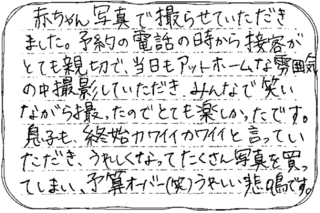 赤ちゃん写真で撮らせていただき
ました。予約の電話の時から接客が
とても親切で、当日もアットホームな雰囲気
の中撮影していただき、みんなで笑い
ながら撮ったのでとても楽しかったです。
息子も、終始カワイイカワイイと言ってい
ただき、うれしくなってたくさん写真を買っ
てしまい、予算オーバー(笑)うれしい悲鳴です。